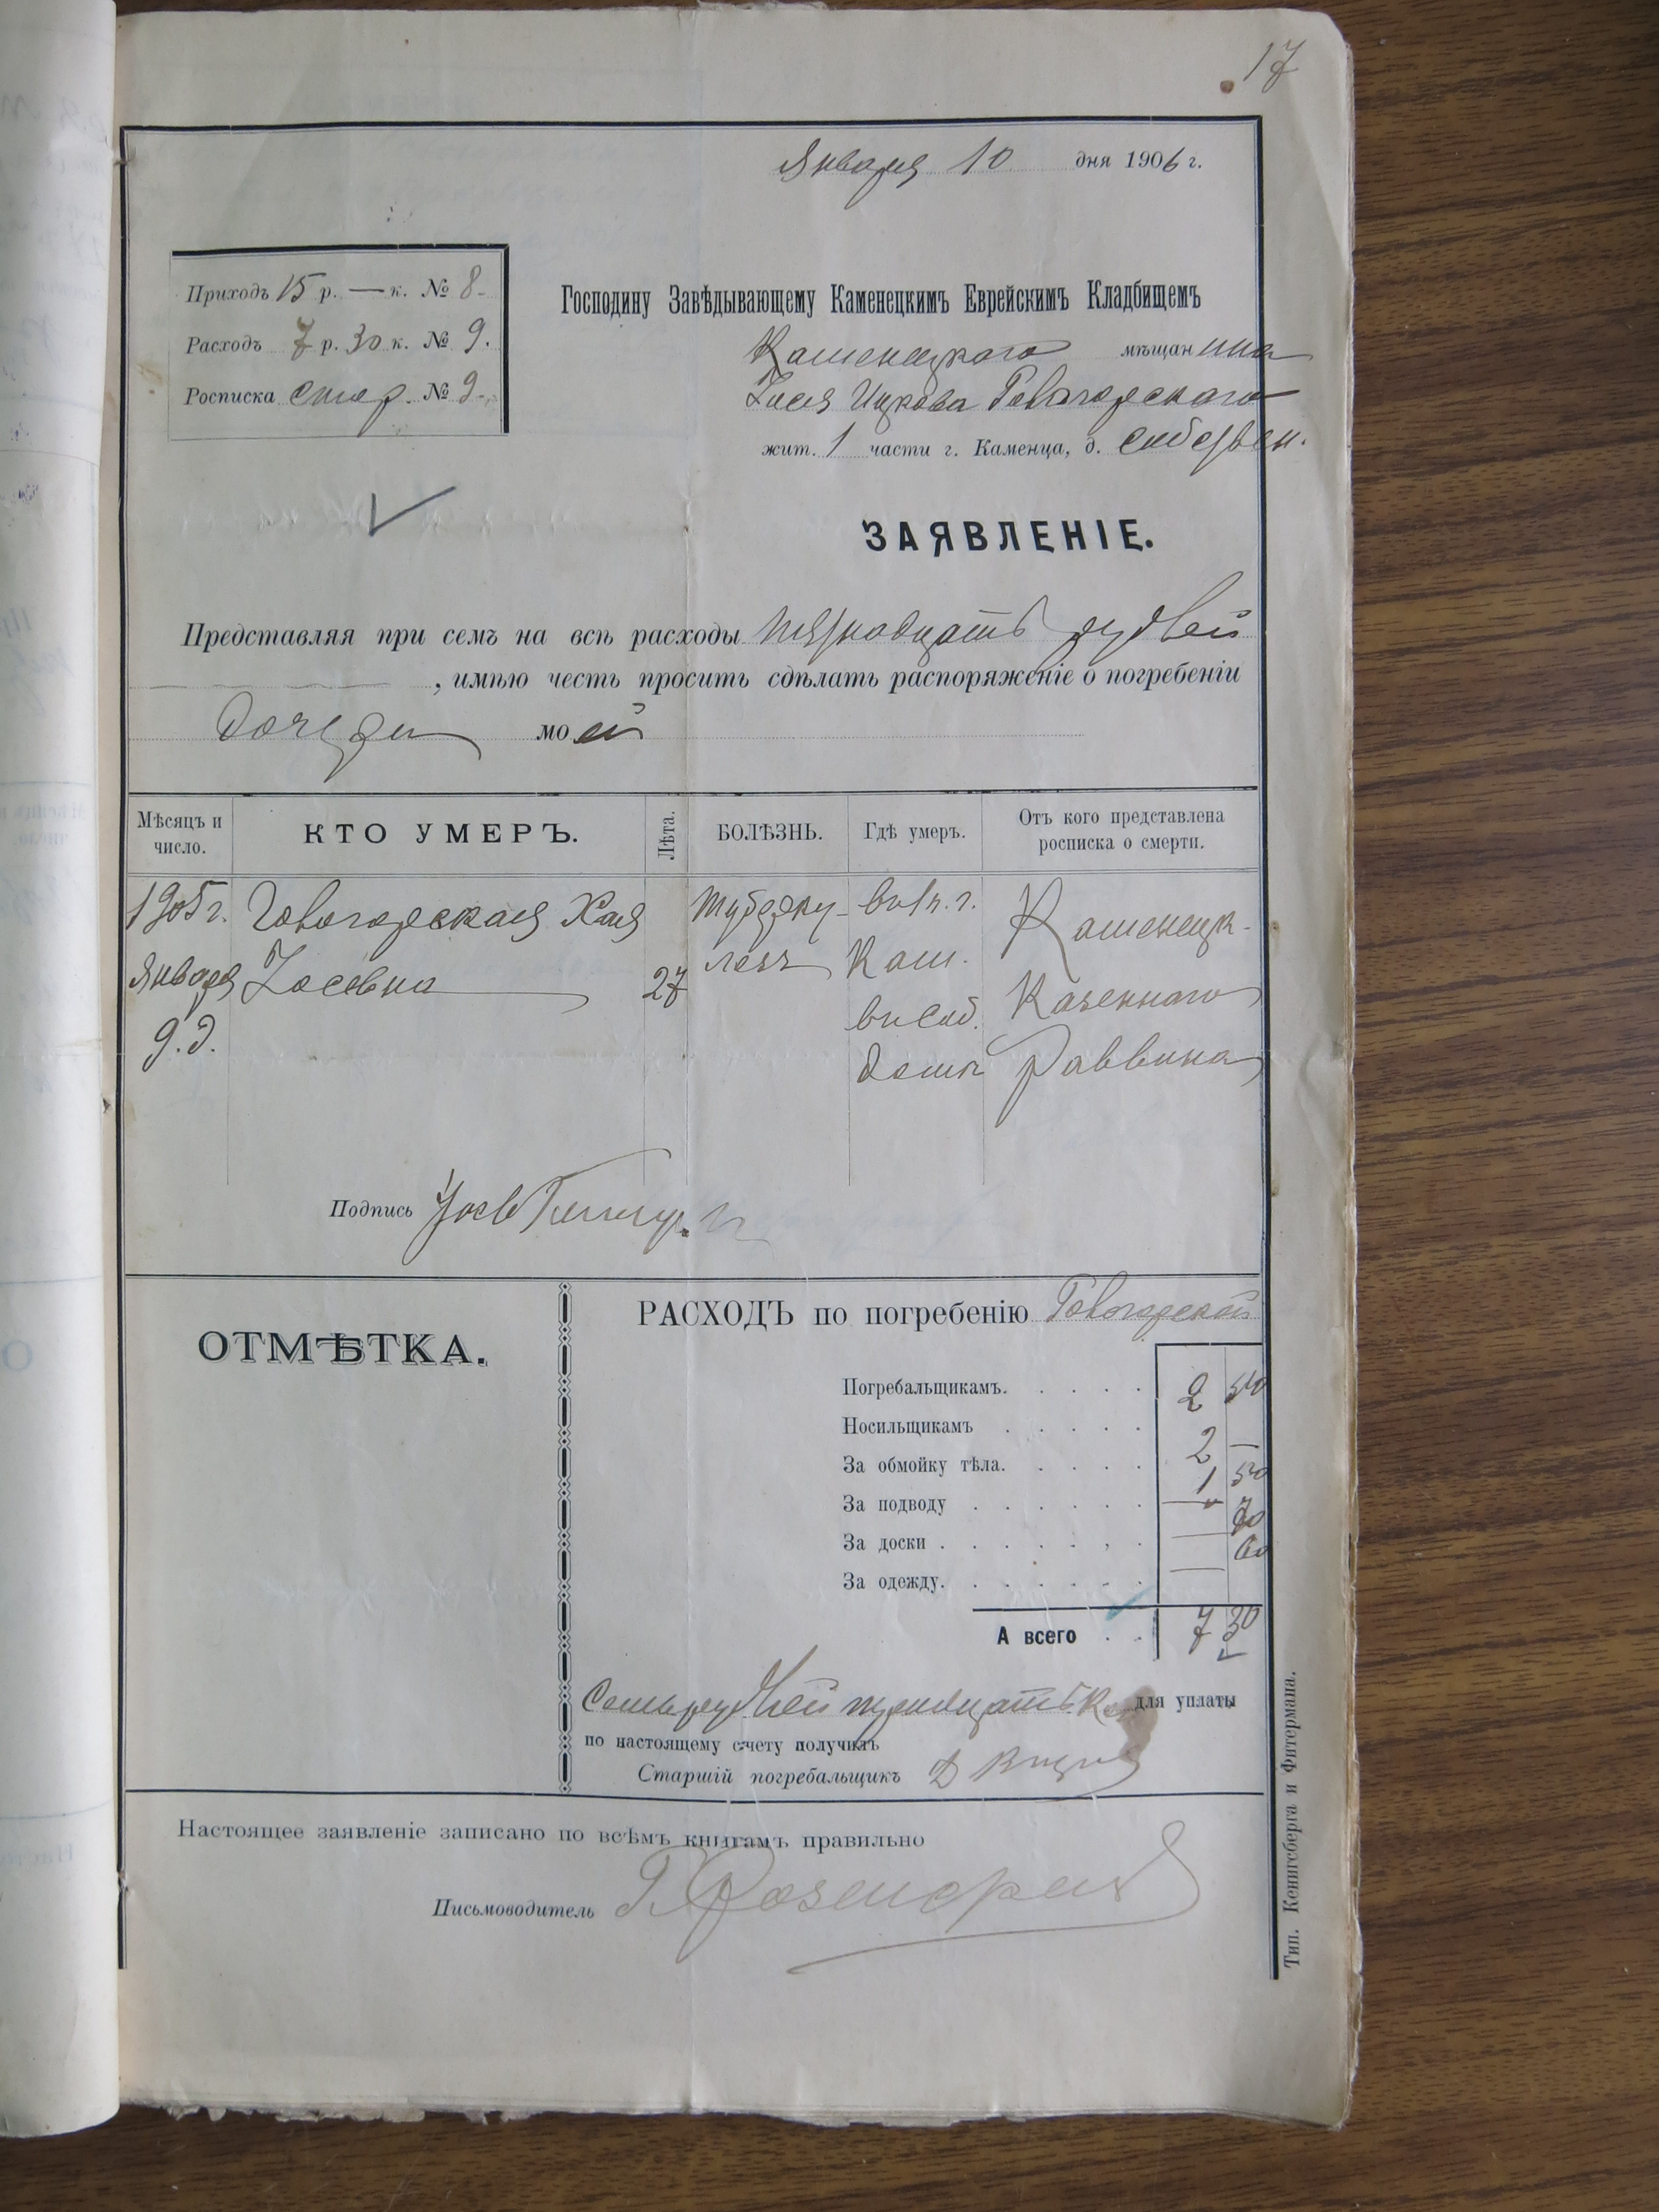 17
Января 10 дня 1906 г.
Приходъ 15 р. — к. № 8
Расходъ 7 р. 30 к. № 9.
Росписка стар. № 9
Господину Завѣдывающему Каменецкимъ Еврейскимъ Кладбищемъ
Каменецкого мѣщанина
Іося Ицкова Говогорского
жит. 1 части г. Каменца, д. собствен.
ЗАЯВЛЕНІЕ.
Представляя при семъ на всѣ расходы пятнадцать рублей
, имѣю честь просить сдѣлать распоряженіе о погребеніи
дочери моей
Мѣсяцъ и число.
КТО УМЕРЪ.
Лѣта.
БОЛѢЗНЬ.
Гдѣ умеръ.
Отъ кого представлена росписка о смерти.
1905 г. Говогорская Хая туберку- въ г. Каменецк.
Января Іосевна 27 лезъ Кам. Казенного
9. д. въ соб. Раввина
домѣ
Подпись
ОТМѢТКА.
РАСХОДЪ по погребенію Говогорской
Погребальщикамъ. 2 50
Носильщикамъ 2 —
За обмойку тѣла. 1 50
За подводу — 70
За доски — 60
За одежду. —
А всего 7 30
Семь рублей тридцать к. для уплаты
по настоящему счету получилъ
Старшій погребальщикъ
Настоящее заявленіе записано по всѣмъ книгамъ правильно
Письмоводитель
Тип. Кенигсберга и Фитермана.